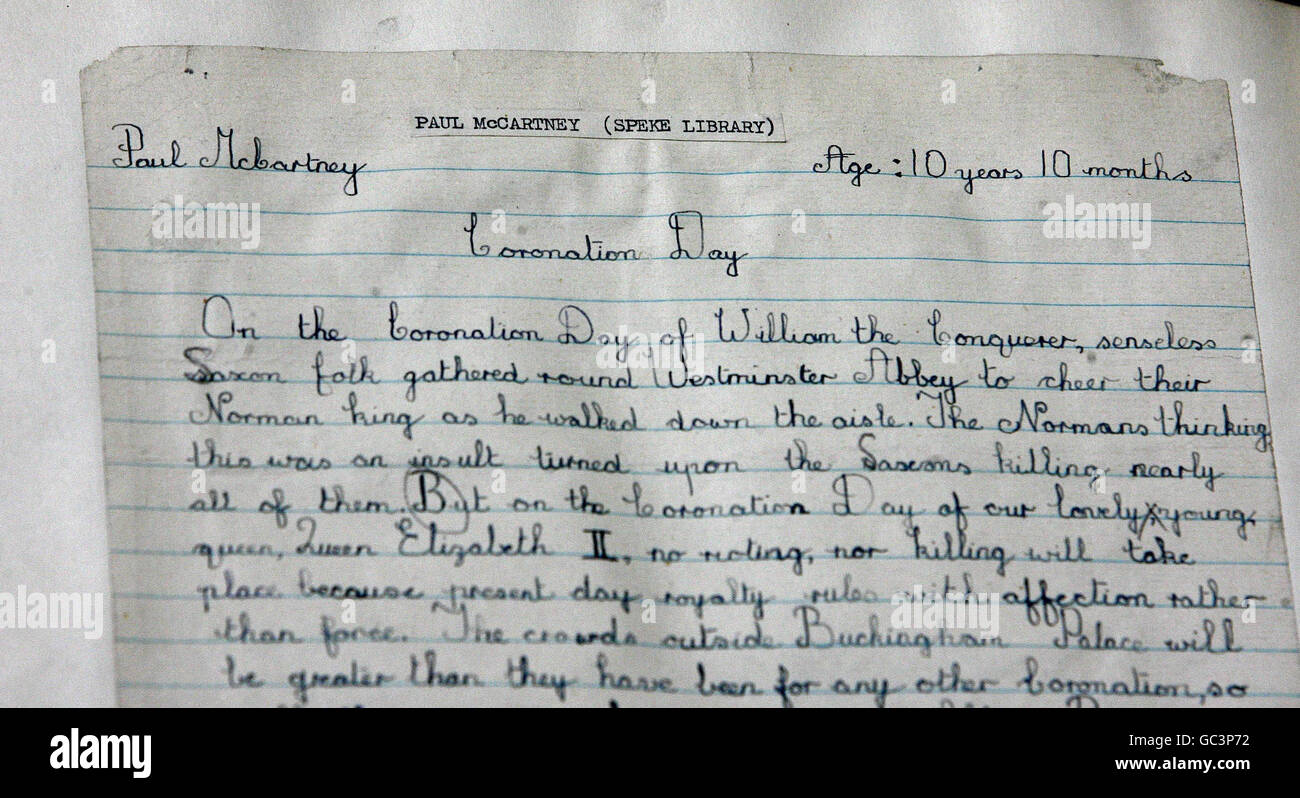 PAUL McCARTNEY (SPEKE LIBRARY)
Paul McCartney Age: 10 years 10 months
Coronation Day
On the Coronation Day of William the Conquerer, senseless
Saxon folk gathered round Westminster Abbey to cheer their
Norman king as he walked down the aisle. The Normans thinking
this was an insult turned upon the Saxons killing nearly
all of them. But on the Coronation Day of our lovely young
queen, Queen Elizabeth II, no rioting, nor killing will take
place because present day royalty rules with affection rather
than force. The crowds outside Buckingham Palace will
be greater than they have been for any other Coronation, so
alamy
alamy
alamy
alamy
alamy
Image ID: GC3P72
www.alamy.com